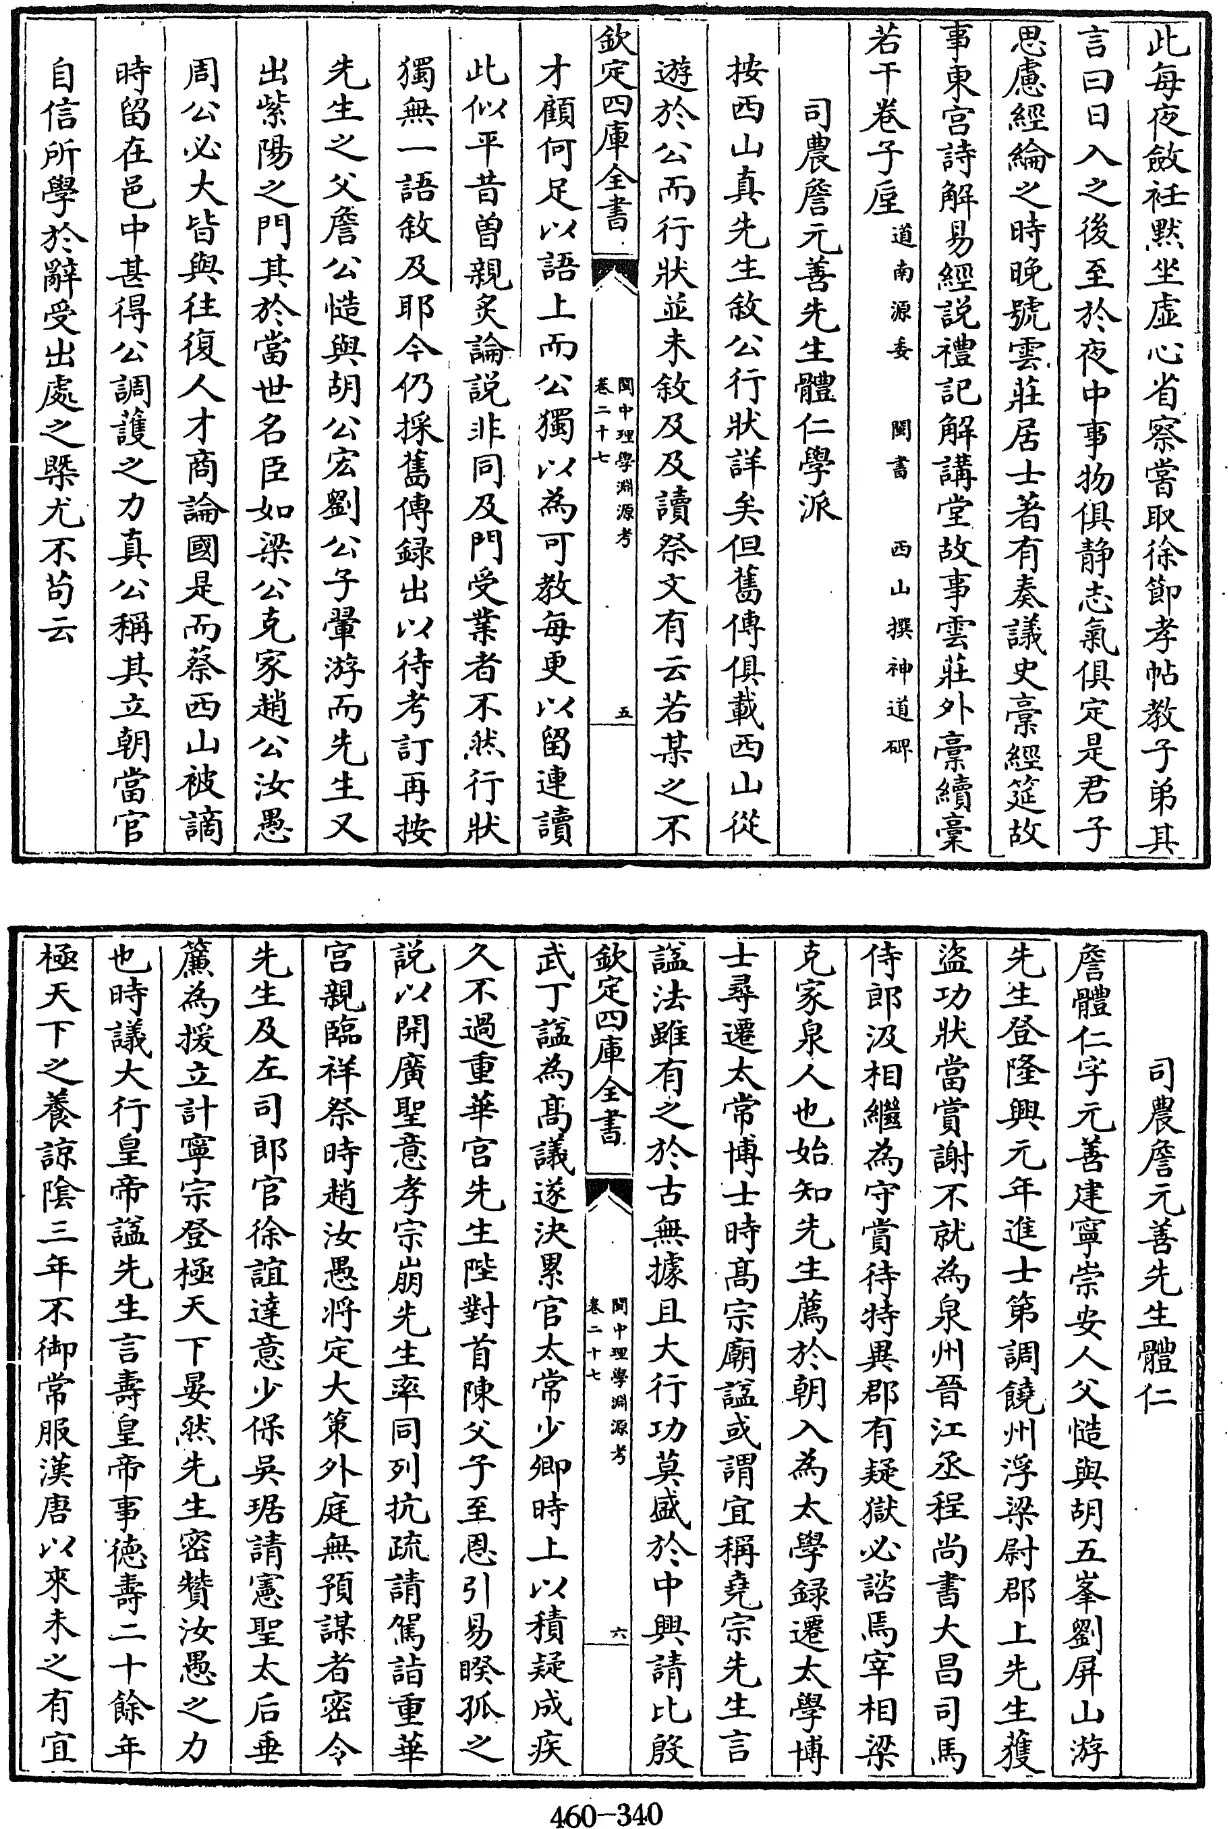 此每夜斂衽黙坐虚心省察嘗取徐節孝帖教子弟其
言曰日入之後至於夜中事物俱静志氣俱定是君子
思慮經綸之時晩號雲莊居士著有奏議史稾經筵故
事東宫詩解易經説禮記解講堂故事雲莊外稾續稾
若干卷子垕道南源委 閩書 西山撰神道碑
司農詹元善先生體仁學派
按西山真先生敘公行狀詳矣但舊傳俱載西山從
遊於公而行狀並未敘及及讀祭文有云若某之不
欽定四庫全書
閩中理學淵源考
卷二十七
五
才顧何足以語上而公獨以為可教每更以留連讀
此似平昔曽親炙論説非同及門受業者不然行狀
獨無一語敘及耶今仍採舊傳録出以待考訂再按
先生之父詹公慥與胡公宏劉公子翬游而先生又
出紫陽之門其於當世名臣如梁公克家趙公汝愚
周公必大皆與往復人才商論國是而蔡西山被謫
時留在邑中甚得公調護之力真公稱其立朝當官
自信所學於辭受出處之槩尤不苟云
司農詹元善先生體仁
詹體仁字元善建寧崇安人父慥與胡五峯劉屏山游
先生登隆興元年進士第調饒州浮梁尉郡上先生獲
盜功狀當賞謝不就為泉州晉江丞程尚書大昌司馬
侍郎汲相繼為守賞待特異郡有疑獄必諮焉宰相梁
克家泉人也始知先生薦於朝入為太學録遷太學博
士尋遷太常博士時髙宗廟諡或謂宜稱堯宗先生言
諡法雖有之於古無據且大行功莫盛於中興請比殷
欽定四庫全書
閩中理學淵源考
卷二十七
六
武丁諡為髙議遂決累官太常少卿時上以積疑成疾
久不過重華宫先生陛對首陳父子至恩引易睽孤之
説以開廣聖意孝宗崩先生率同列抗疏請駕詣重華
宫親臨祥祭時趙汝愚將定大策外庭無預謀者密令
先生及左司郎官徐誼達意少保吳琚請憲聖太后垂
簾為援立計寧宗登極天下晏然先生密贊汝愚之力
也時議大行皇帝諡先生言壽皇帝事徳壽二十餘年
極天下之養諒隂三年不御常服漢唐以來未之有宜
460-340